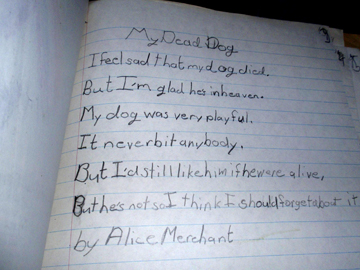 My Dead Dog
I feel sad that my dog died.
But I'm glad he's in heaven.
My dog was very playful.
It never bit anybody.
But I'd still like him if he were alive,
But he's not so I think I should forget about it
by Alice Merchant